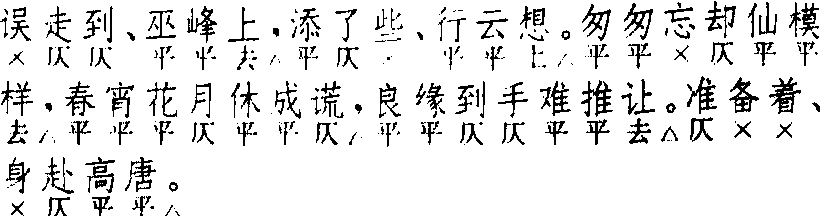 误走到、巫峰上，添了些、行云想。匆匆忘却仙模
×仄仄 平平去△平仄· 平平上△平平×仄平平
样，春宵花月休成谎，良缘到手难推让。准备着、
去△平平平仄平平仄△平平仄仄平平去△仄××
身赴高唐。
×仄平平△